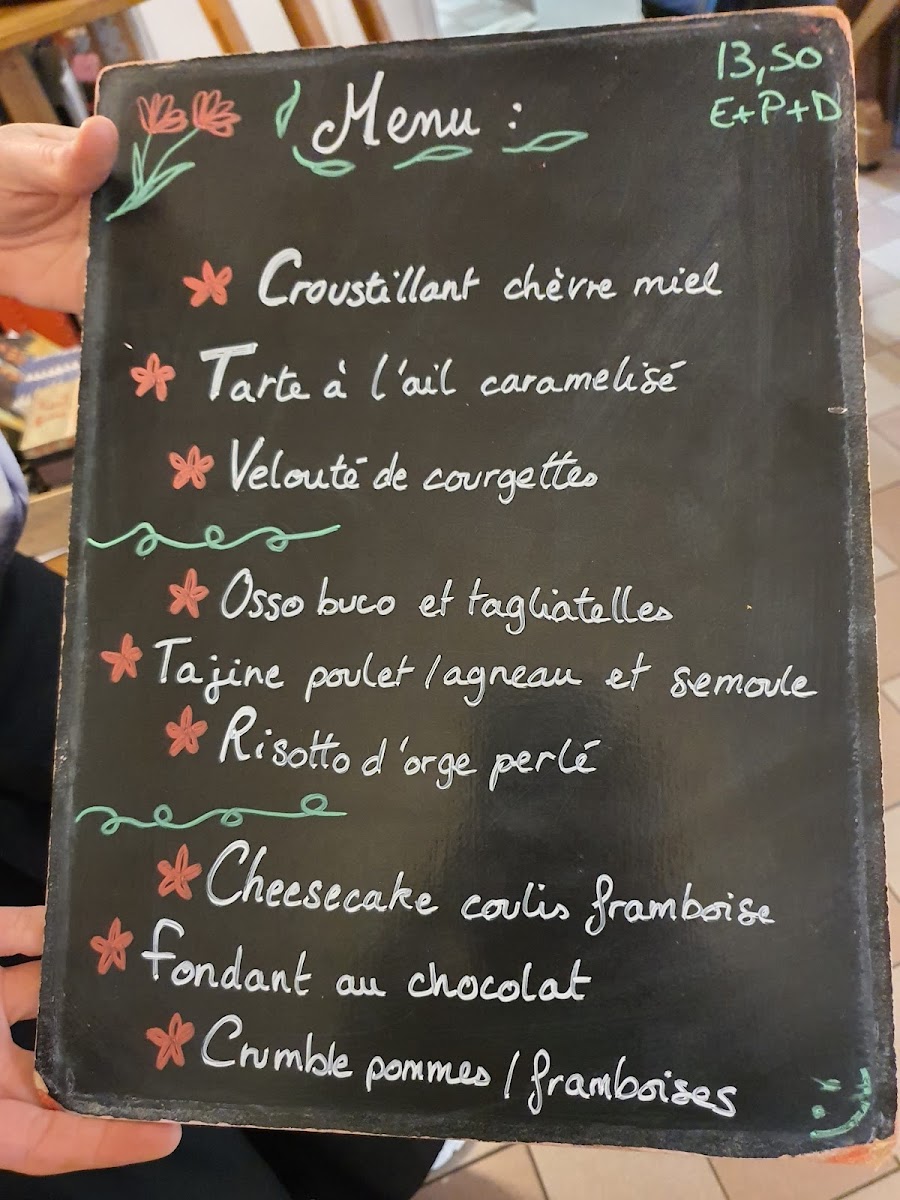 Menu :
13,50
E+P+D
Croustillant chèvre miel
Tarte à l'ail caramelisé
Velouté de courgettes
Osso buco et tagliatelles
Tajine poulet / agneau et semoule
Risotto d'orge perlé
Cheesecake coulis framboise
fondant au chocolat
Crumble pommes / framboises